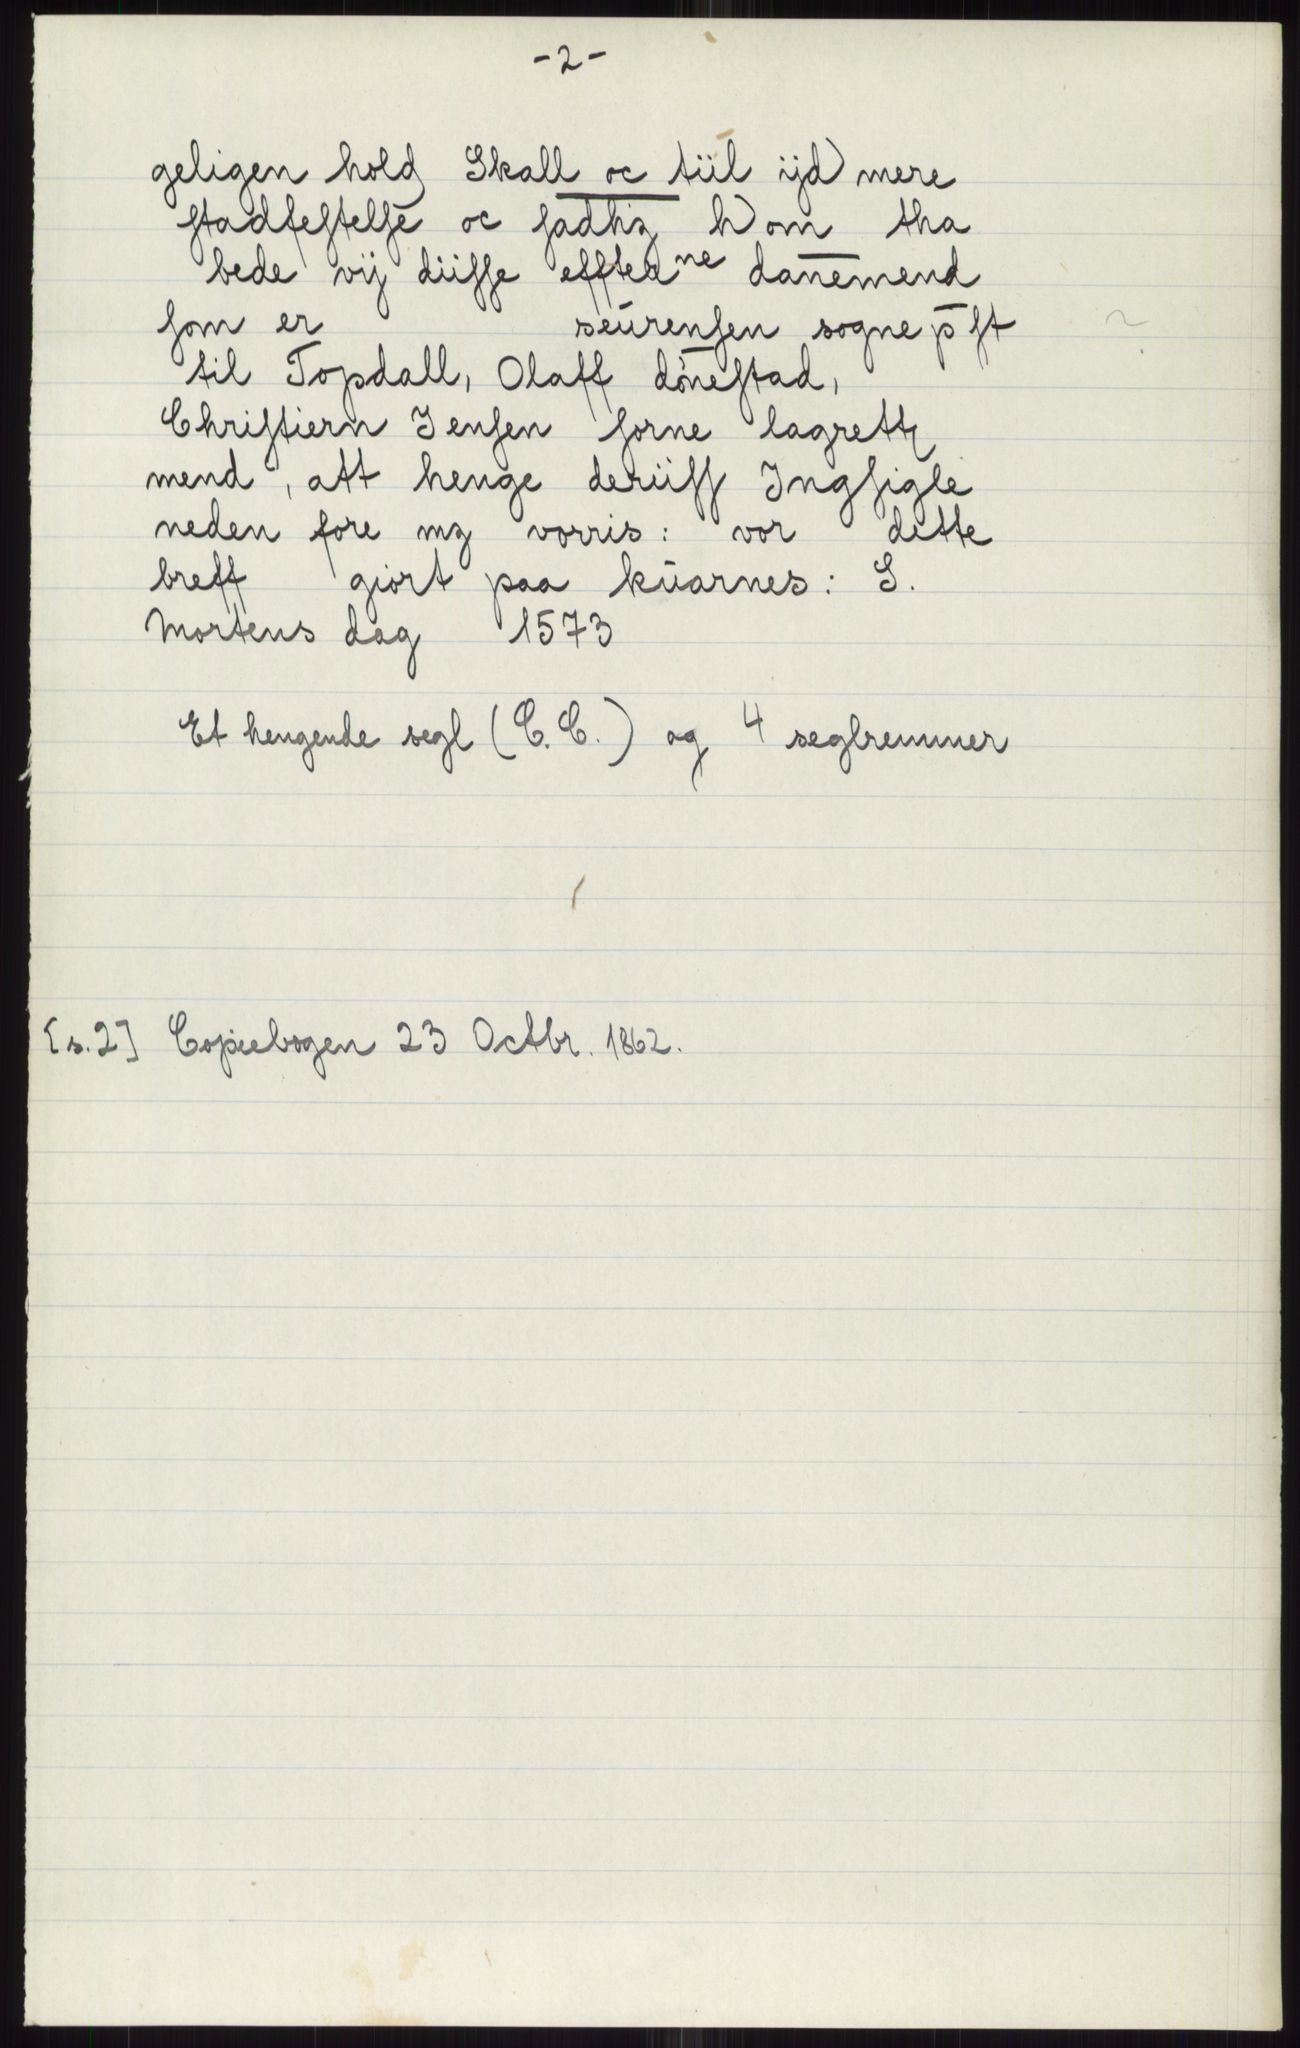 -2-
geligen hold Skall oc tiil ijd mere
stadfestelse oc sadhz h) om tha
bede vij diisse effterne danemend
som er seurensen sogne p̄st
til Topdall, Olaff dönestad,
Christiern Jensen sorne lagrettz
mend, att henge deriiss Ingsigle
neden fore mz vorris: vor dette
breff giort paa kuarnes: S.
Mortens dag 1573
Et hengende segl (C.C.) og 4 seglremmer
[s.2] Copiebogen 23 Octbr. 1862.